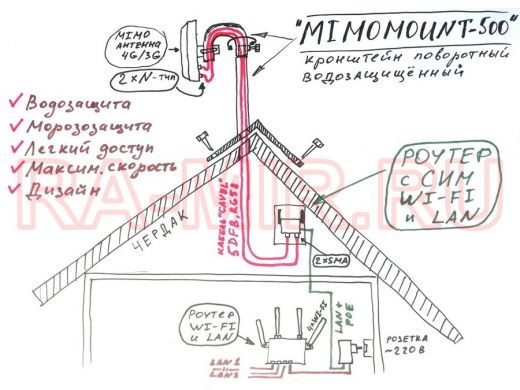 "MIMOMOUNT-500"
кронштейн поворотный
водозащищённый
MIMO
АНТЕННА
4G/3G
2×N-ТИП
✓ Водозащита
✓ Морозозащита
✓ Легкий доступ
✓ Максим. скорость
✓ Дизайн
РОУТЕР
С СИМ
WI-FI
и LAN
ЧЕРДАК
КАБЕЛЬ "CAVEL"
5DFB, RG58
2×SMA
LAN +
POE
РОУТЕР
WI-FI
и LAN
4×WI-FI
РОЗЕТКА
~220В
LAN1
LAN3
RA-MIR.RU